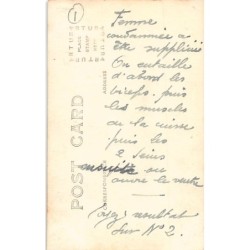 1
PLACE
STAMP
HERE
POST CARD
CORRESPONDENCE
ADDRESS
Femme
condamnée à
être suppliciée
On entaille
d'abord les
biceps. puis
les muscles
de la cuisse
puis les
2 seins
ensuite on
ouvre le ventre
résultat
sur N° 2.